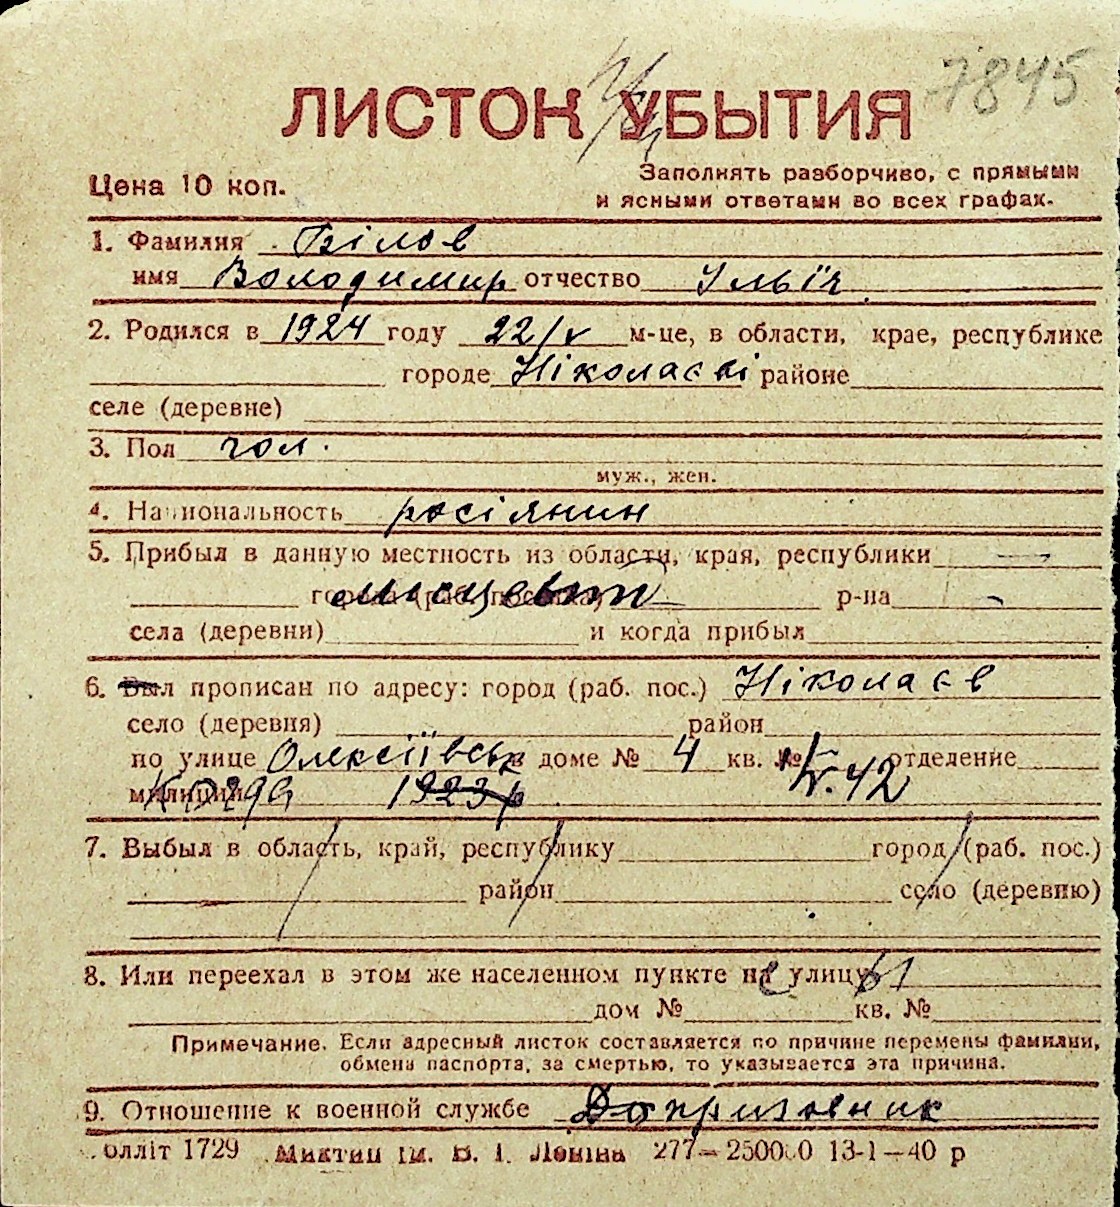 7845
ЛИСТОК УБЫТИЯ
Цена 10 коп.
Заполнять разборчиво, с прямыми
и ясными ответами во всех графах.
1. Фамилия Білов
имя Володимир отчество Ільїч
2. Родился в 1924 году 22/V м-це, в области, крае, республике
городе Ніколаєві районе
селе (деревне)
3. Пол чол.
муж., жен.
4. Национальность росіянин
5. Прибыл в данную местность из области, края, республики —
города (раб. поселка) місцевий р-на
села (деревни) и когда прибыл
6. Был прописан по адресу: город (раб. пос.) Ніколаєв
село (деревня) район
по улице Олексіївськ доме № 4 кв. № отделение
милиции 1923р 42
7. Выбыл в область, край, республику город (раб. пос.)
район село (деревню)
8. Или переехал в этом же населенном пункте на улицу
дом № кв. №
Примечание. Если адресный листок составляется по причине перемены фамилии,
обмена паспорта, за смертью, то указывается эта причина.
9. Отношение к военной службе Допризовник
олліт 1729 ім. В. І. Леніна 277—250000 13-1—40 р